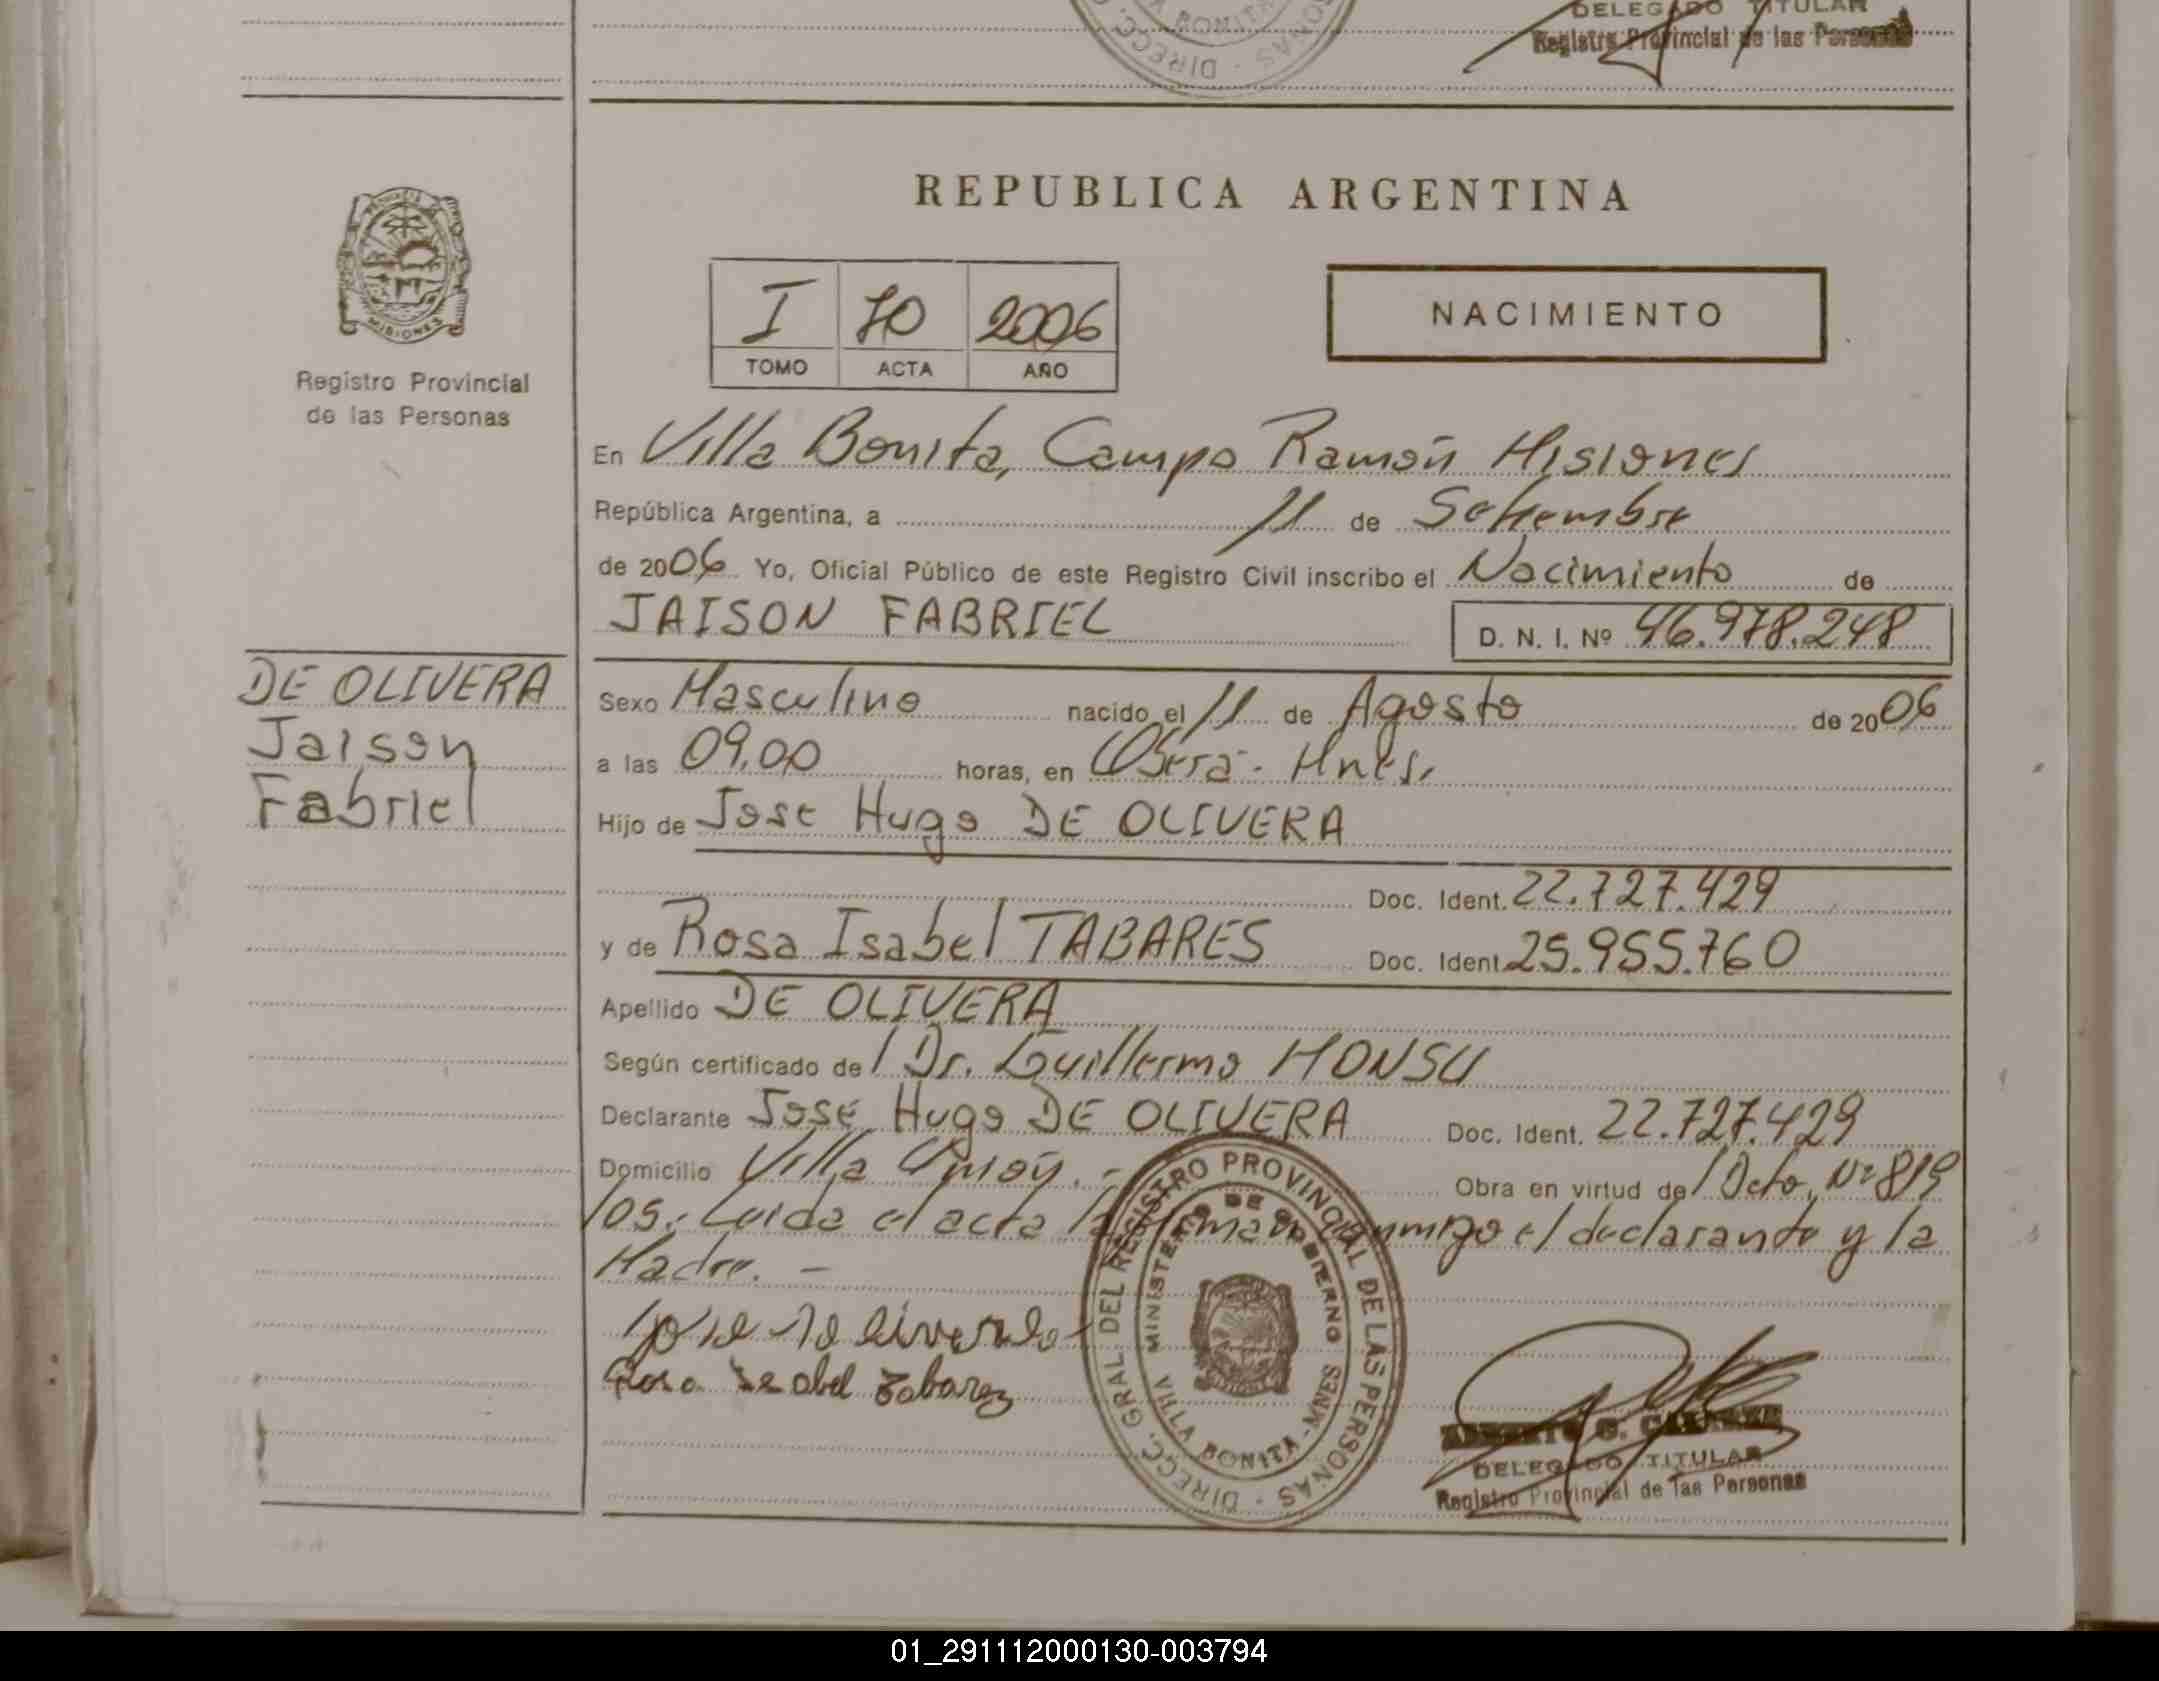 DELEGADO TITULAR
Registro Provincial de las Personas
REPUBLICA ARGENTINA
MISIONES
Registro Provincial
de las Personas
I 70 2006
TOMO ACTA AÑO
NACIMIENTO
En Villa Bonita, Campo Ramón Misiones
República Argentina, a 11 de Setiembre
de 2006 Yo, Oficial Público de este Registro Civil inscribo el Nacimiento de
JAISON FABRIEL D. N. I. Nº 46.978.248
DE OLIVERA
Jaison
Fabriel
Sexo Masculino nacido el 11 de Agosto de 2006
a las 09,00 horas, en Oberá - Mnes.
Hijo de Jose Hugo DE OLIVERA
Doc. Ident. 22.727.429
y de Rosa Isabel TABARES Doc. Ident. 25.955.760
Apellido DE OLIVERA
Según certificado de / Dr. Guillermo MONSU
Declarante José Hugo DE OLIVERA Doc. Ident. 22.727.429
Domicilio Villa . - Obra en virtud de / Dcto. Nº 819
/05. Leida el acta la firman conmigo el declarante y la
Madre. -
Rosa Isabel Tabarez
DIRECC. GRAL. DEL REGISTRO PROVINCIAL DE LAS PERSONAS -
MINISTERIO DE GOBIERNO
VILLA BONITA - MNES
DELEGADO TITULAR
Registro Provincial de las Personas
01_291112000130-003794